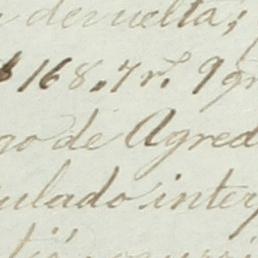 devuelta;
$168.,7 r.s 9 gr
go de Agred
ulado inter